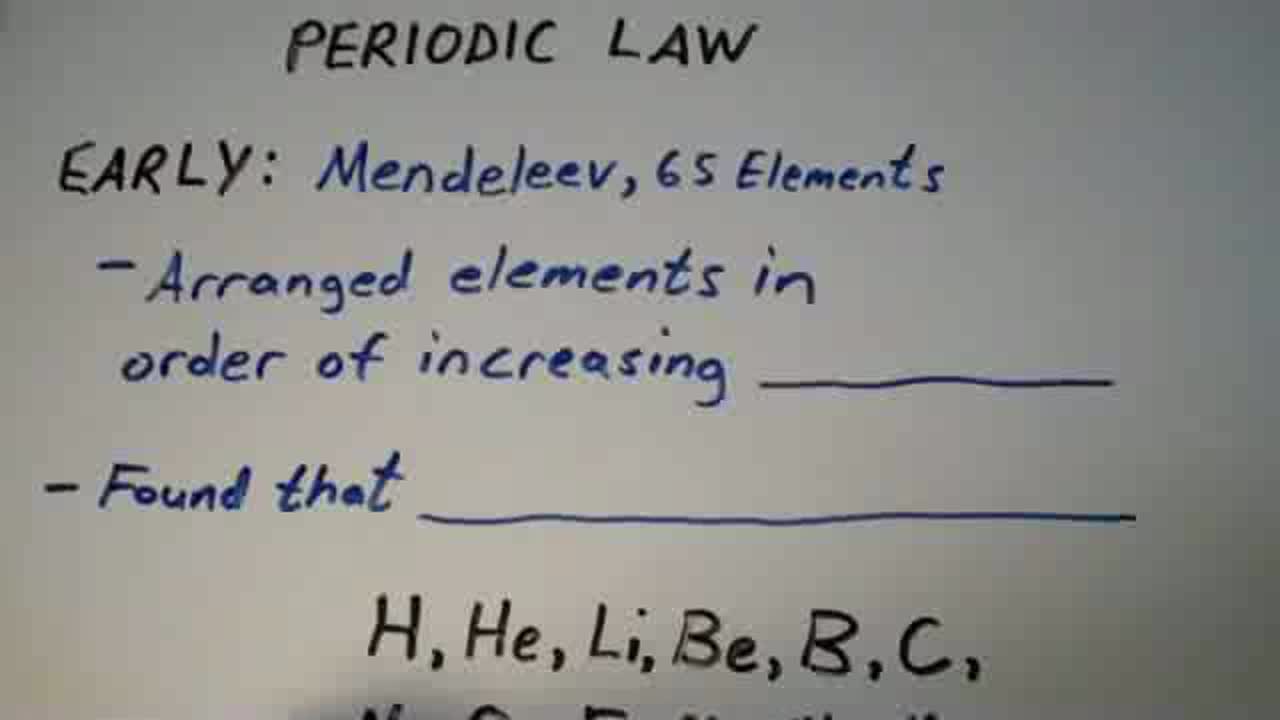 PERIODIC LAW
EARLY: Mendeleev, 65 Elements
- Arranged elements in
order of increasing
- Found that
H, He, Li, Be, B, C,